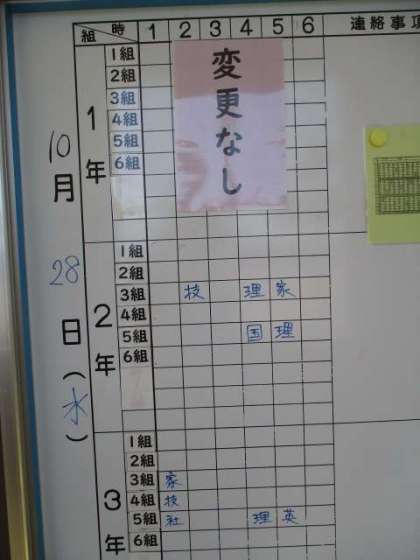 組 時 1 2 3 4 5 6 連絡事項
10月28日(水)
1年
1組
2組
3組
4組
5組
6組
変更なし
2年
1組
2組
3組 技 理 家
4組
5組 国 理
6組
3年
1組
2組
3組 家
4組 技
5組 社 理 英
6組